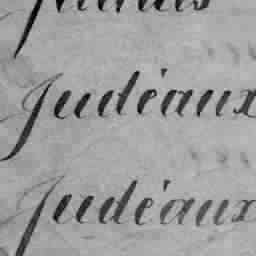 Judéaux
Judéaux